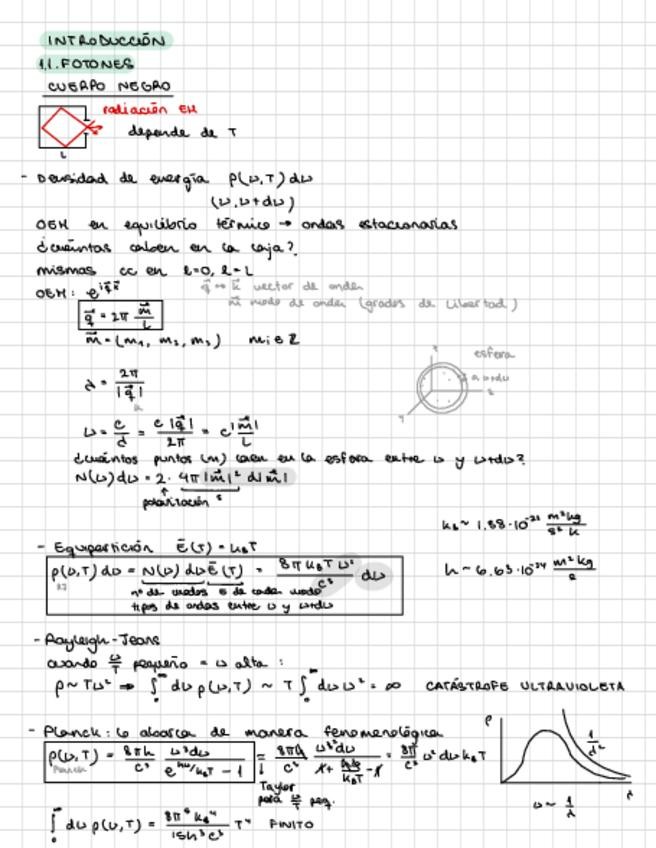 INTRODUCCIÓN
1.1. FOTONES
CUERPO NEGRO
radiación EM
depende de T
L
- Densidad de energía ρ(ν,T) dν
(ν, ν+dν)
OEM en equilibrio térmico → ondas estacionarias
¿cuántas caben en la caja?
mismas cc en
OEM: e^{i q⃗ x⃗}
q⃗ ↔ k⃗ vector de onda
m⃗ modo de onda (grados de libertad)
q⃗ = 2π m⃗/L
m⃗ = (m₁, m₂, m₃) mᵢ ∈ ℤ
esfera
λ = 2π/|q⃗|
ν = c/λ = c|q⃗|/2π = c|m⃗|/L
¿cuántos puntos (m) caen en la esfera entre ν y ν+dν?
N(ν) dν = 2 · 4π |m⃗|² d|m⃗|
↑ polarización
k_B ~ 1,38·10⁻²³ m² kg/s² K
- Equipartición Ē(T) = k_B T
h ~ 6,63·10⁻³⁴ m² kg/s
ρ(ν,T) dν = N(ν) dν Ē(T) = 8π k_B T ν²/c³ dν
RJ
nº de modos E de cada modo
tipos de ondas entre ν y ν+dν
- Rayleigh-Jeans
cuando ν/T pequeño = ν alta :
ρ ~ Tν² ⇒ ∫₀^∞ dν ρ(ν,T) ~ T ∫₀^∞ dν ν² = ∞ CATÁSTROFE ULTRAVIOLETA
- Planck: lo abarca de manera fenomenológica
ρ(ν,T) = 8πh/c³ ν³dν/(e^{hν/k_B T} - 1) = 8πh/c³ ν³dν/(1 + hν/k_B T - 1) = 8π/c³ ν² dν k_B T
Planck
Taylor
para ν/T peq.
ρ
1/λ²
λ
ν ~ 1/λ
∫₀^∞ dν ρ(ν,T) = 8π⁵ k_B⁴/15h³c³ T⁴ FINITO